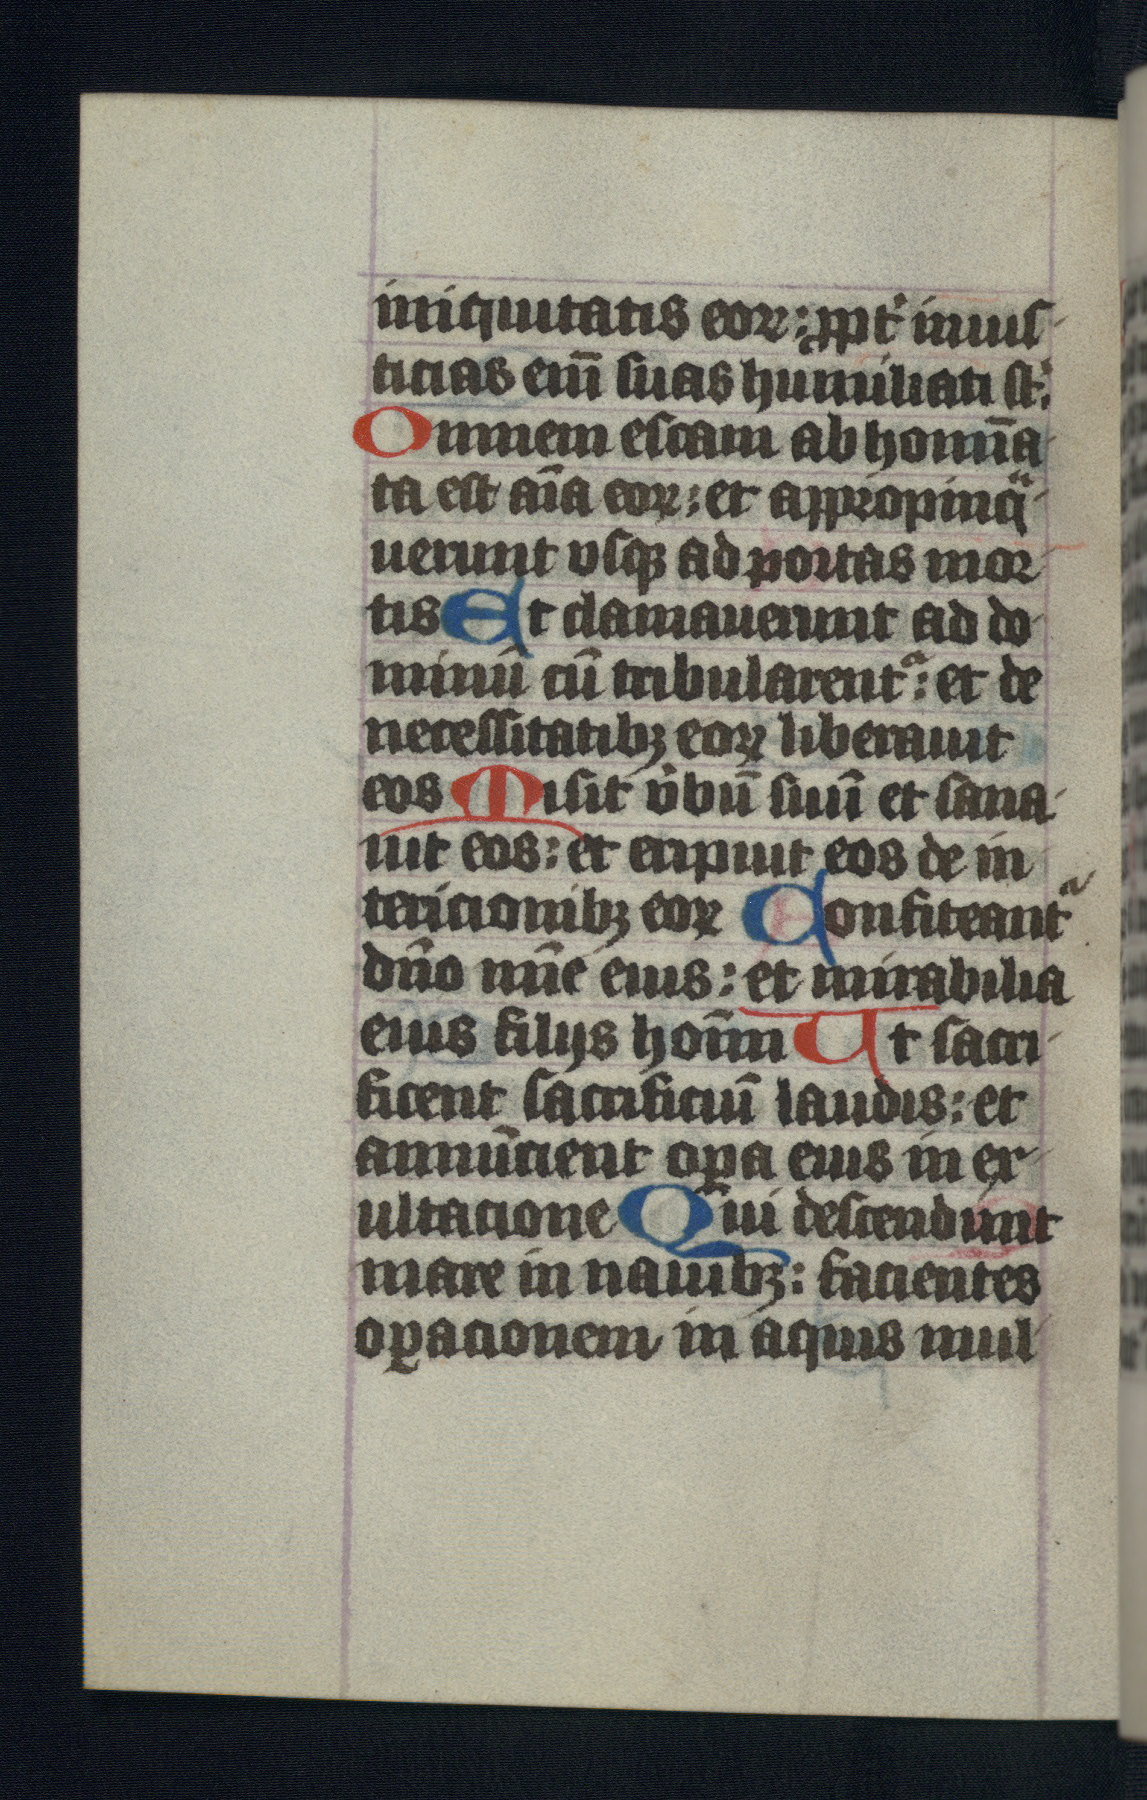 iniquitatis eoꝝ: ꝓpt̾ iniuſ
ticias em̄ suas humiliati st̄:
Omnem escam abhomīa
ta est aīa eoꝝ: et appropinqͣ
uerunt vsqꝫ ad portas mor
tis Et clamauerunt ad do
minū cū tribularentᷣ: et de
necessitatibꝫ eoꝝ liberauit
eos Misit v̾bū suū et sana
uit eos: et eripuit eos de in
tericionibꝫ eoꝝ Confiteantᷣ
dn̄o mīe eius: et mirabilia
eius filijs hoīm Ut sacri
ficent sacrificiū laudis: et
annūcient oꝑa eius in ex
ultacione Qui descendunt
mare in nauibꝫ: facientes
oꝑacionem in aquis mul